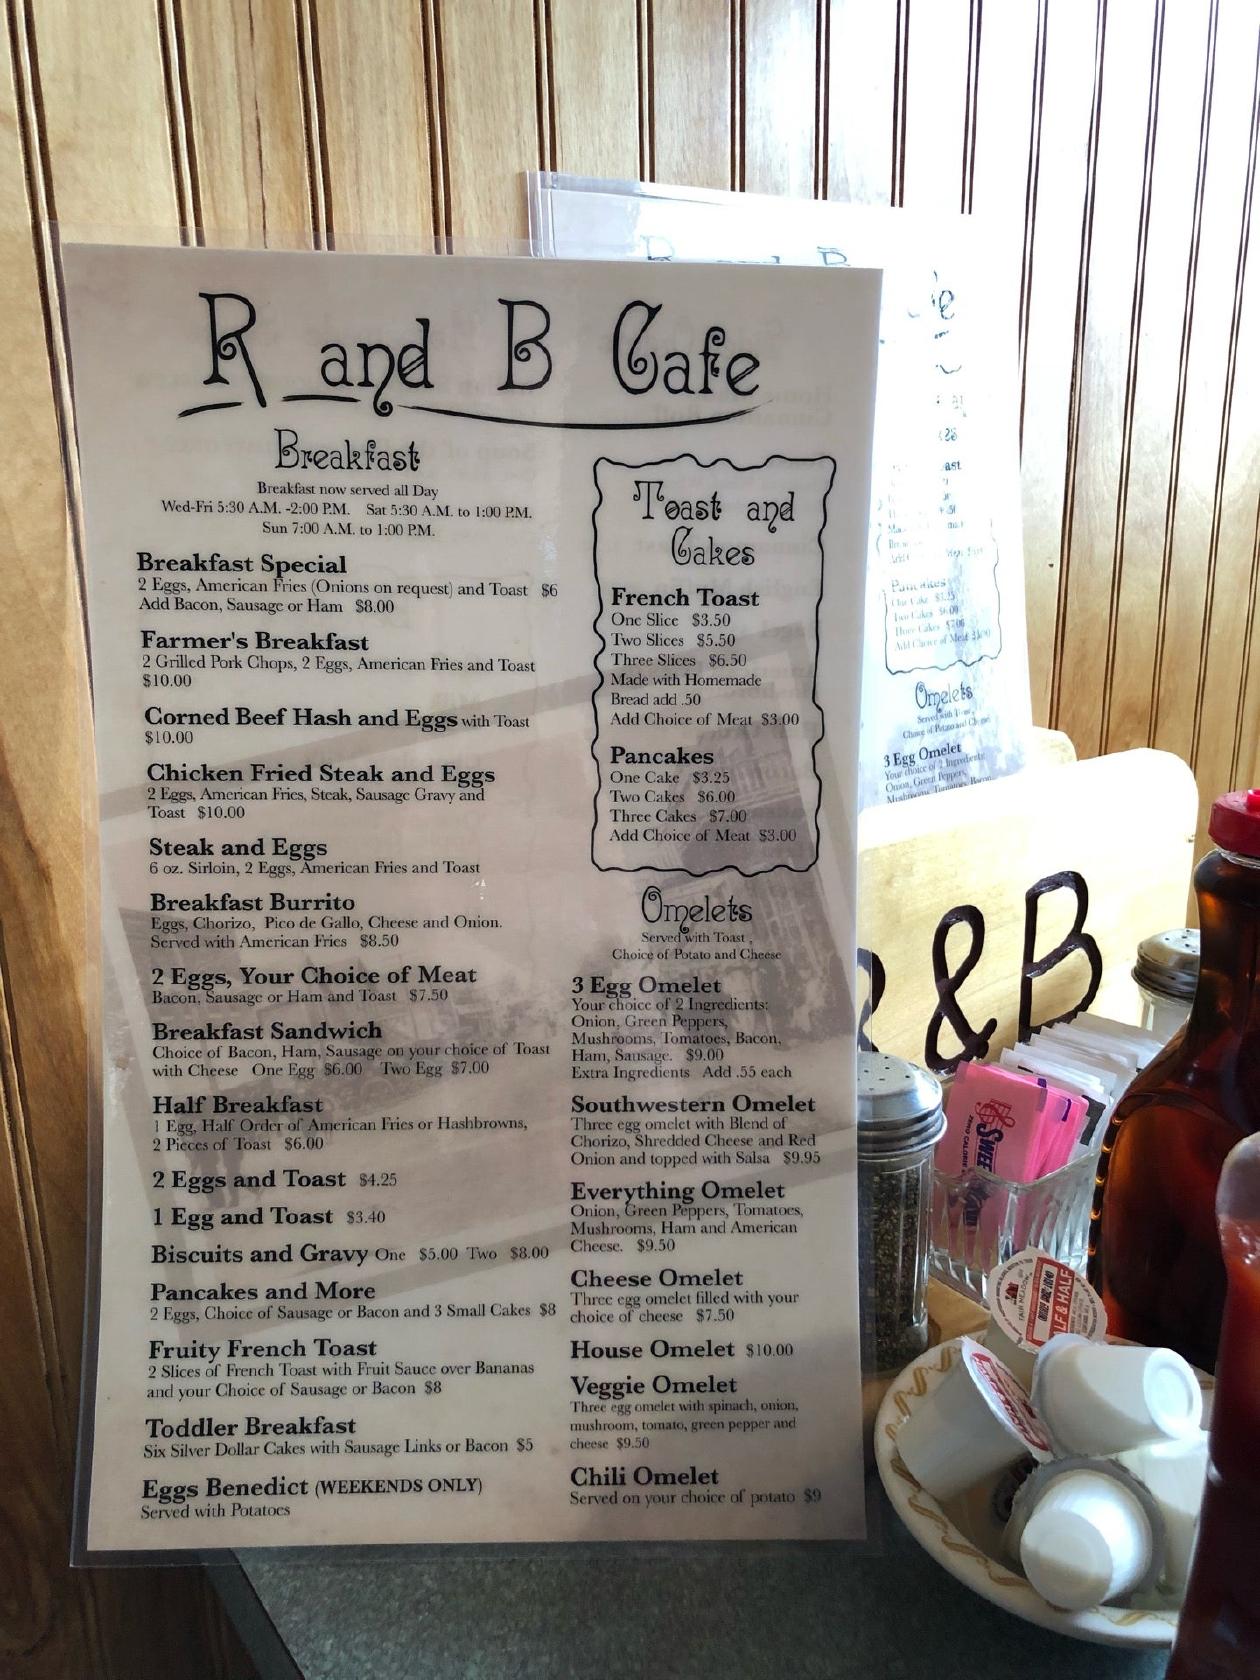 R and B Cafe
Breakfast
Breakfast now served all Day
Wed-Fri 5:30 A.M. -2:00 P.M. Sat 5:30 A.M. to 1:00 P.M.
Sun 7:00 A.M. to 1:00 P.M.
Breakfast Special
2 Eggs, American Fries (Onions on request) and Toast $6
Add Bacon, Sausage or Ham $8.00
Farmer's Breakfast
2 Grilled Pork Chops, 2 Eggs, American Fries and Toast
$10.00
Corned Beef Hash and Eggs with Toast
$10.00
Chicken Fried Steak and Eggs
2 Eggs, American Fries, Steak, Sausage Gravy and
Toast $10.00
Steak and Eggs
6 oz. Sirloin, 2 Eggs, American Fries and Toast
Breakfast Burrito
Eggs, Chorizo, Pico de Gallo, Cheese and Onion.
Served with American Fries $8.50
2 Eggs, Your Choice of Meat
Bacon, Sausage or Ham and Toast $7.50
Breakfast Sandwich
Choice of Bacon, Ham, Sausage on your choice of Toast
with Cheese One Egg $6.00 Two Egg $7.00
Half Breakfast
1 Egg, Half Order of American Fries or Hashbrowns,
2 Pieces of Toast $6.00
2 Eggs and Toast $4.25
1 Egg and Toast $3.40
Biscuits and Gravy One $5.00 Two $8.00
Pancakes and More
2 Eggs, Choice of Sausage or Bacon and 3 Small Cakes $8
Fruity French Toast
2 Slices of French Toast with Fruit Sauce over Bananas
and your Choice of Sausage or Bacon $8
Toddler Breakfast
Six Silver Dollar Cakes with Sausage Links or Bacon $5
Eggs Benedict (WEEKENDS ONLY)
Served with Potatoes
Toast and
Cakes
French Toast
One Slice $3.50
Two Slices $5.50
Three Slices $6.50
Made with Homemade
Bread add .50
Add Choice of Meat $3.00
Pancakes
One Cake $3.25
Two Cakes $6.00
Three Cakes $7.00
Add Choice of Meat $3.00
Omelets
Served with Toast ,
Choice of Potato and Cheese
3 Egg Omelet
Your choice of 2 Ingredients:
Onion, Green Peppers,
Mushrooms, Tomatoes, Bacon,
Ham, Sausage. $9.00
Extra Ingredients Add .55 each
Southwestern Omelet
Three egg omelet with Blend of
Chorizo, Shredded Cheese and Red
Onion and topped with Salsa $9.95
Everything Omelet
Onion, Green Peppers, Tomatoes,
Mushrooms, Ham and American
Cheese. $9.50
Cheese Omelet
Three egg omelet filled with your
choice of cheese $7.50
House Omelet $10.00
Veggie Omelet
Three egg omelet with spinach, onion,
mushroom, tomato, green pepper and
cheese $9.50
Chili Omelet
Served on your choice of potato $9
Pancakes
One Cake $3.25
Two Cakes $6.00
Three Cakes $7.00
Add Choice of Meat
Omelets
Served with
Choice of Potato and
3 Egg Omelet
Your choice of 2 Ingredients:
Onion, Green Peppers,
Mushrooms, Tomatoes, Bacon,
R & B
ZERO CALORIE
HALF & HALF